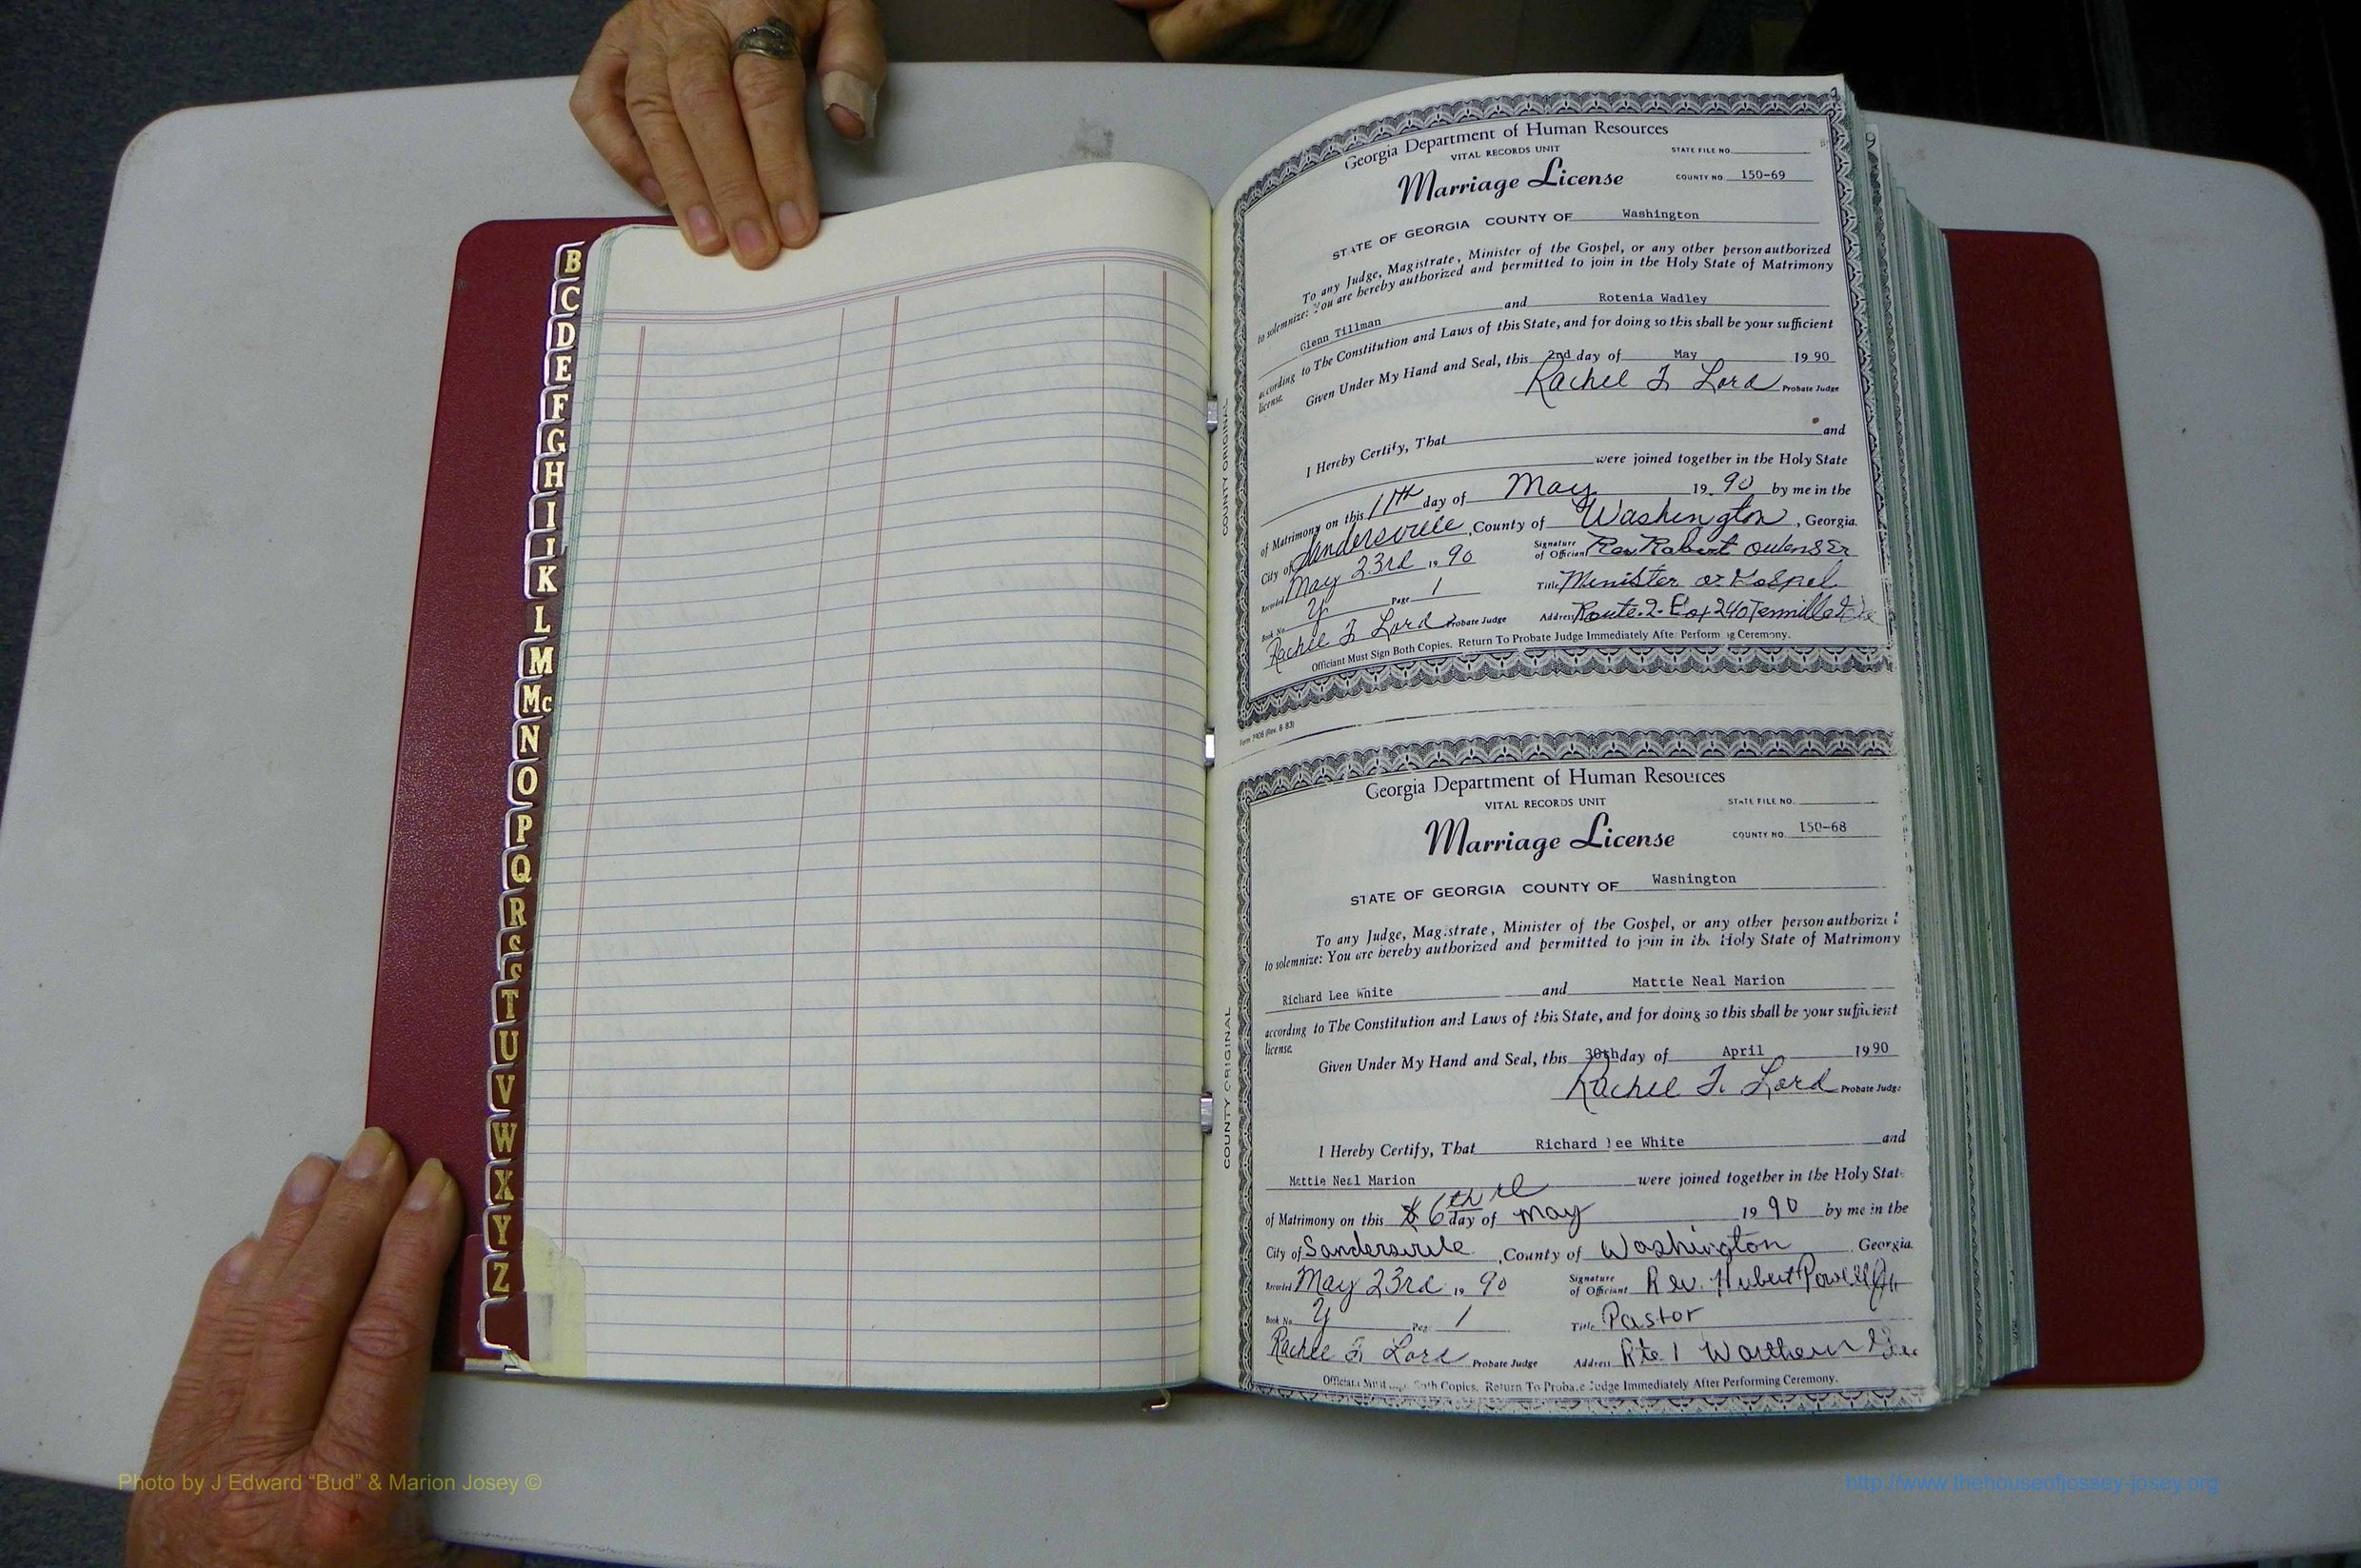 B
C
D
E
F
G
H
I
J
K
L
M
Mc
N
O
P
Q
R
S
T
U
V
W
X
Y
Z
COUNTY ORIGINAL
Georgia Department of Human Resources
VITAL RECORDS UNIT
STATE FILE NO.
Marriage License
COUNTY NO. 150-69
STATE OF GEORGIA COUNTY OF Washington
To any Judge, Magistrate, Minister of the Gospel, or any other person authorized
to solemnize: You are hereby authorized and permitted to join in the Holy State of Matrimony
Glenn Tillman and Rotenia Wadley
according to The Constitution and Laws of this State, and for doing so this shall be your sufficient
license.
Given Under My Hand and Seal, this 2nd day of May 19 90
Rachel F. Lord Probate Judge
I Hereby Certify, That and
were joined together in the Holy State
of Matrimony on this 11th day of May 19 90 by me in the
City of Sandersville, County of Washington, Georgia.
Recorded May 23rd, 19 90 Signature of Officiant Rev Robert Owens Sr
Book No. Y Page 1 Title Minister of Gospel
Rachel F. Lord Probate Judge Address Route 2 Box 240 Tennille
Officiant Must Sign Both Copies. Return To Probate Judge Immediately After Performing Ceremony.
Form 3908 (Rev. 8-83)
COUNTY ORIGINAL
Georgia Department of Human Resources
VITAL RECORDS UNIT
STATE FILE NO.
Marriage License
COUNTY NO. 150-68
STATE OF GEORGIA COUNTY OF Washington
To any Judge, Magistrate, Minister of the Gospel, or any other person authorized
to solemnize: You are hereby authorized and permitted to join in the Holy State of Matrimony
Richard Lee White and Mattie Neal Marion
according to The Constitution and Laws of this State, and for doing so this shall be your sufficient
license.
Given Under My Hand and Seal, this 30th day of April 19 90
Rachel F. Lord Probate Judge
I Hereby Certify, That Richard Lee White and
Mattie Neal Marion were joined together in the Holy State
of Matrimony on this 6th day of May 19 90 by me in the
City of Sandersville, County of Washington Georgia.
Recorded May 23rd, 19 90 Signature of Officiant Rev. Hubert Powell Jr
Book No. Y Page 1 Title Pastor
Rachel F. Lord Probate Judge Address Rte 1 Warthen
Officiant Must Sign Both Copies. Return To Probate Judge Immediately After Performing Ceremony.
Photo by J Edward “Bud” & Marion Josey ©
http://www.thehouseofjossey-josey.org